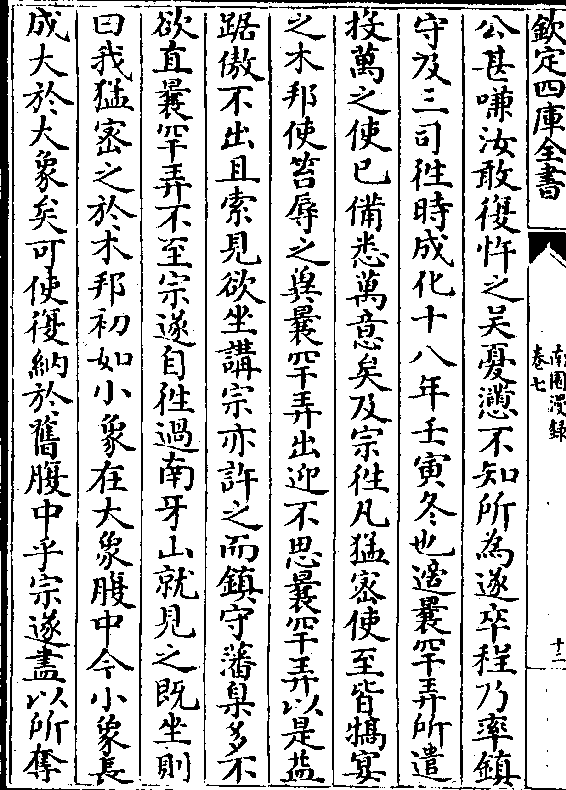 欽定四庫全書
南園漫録
卷七
十二
公甚嗛汝敢復忤之吴憂懣不知所為遂卒程乃率鎮
守及三司徃時成化十八年壬寅冬也適曩罕弄所遣
投萬之使已備悉萬意矣及宗徃凡猛密使至皆犒宴
之木邦使笞辱之兾曩罕弄出迎不思曩罕弄以是益
踞傲不出且索見欲坐講宗亦許之而鎮守藩臬多不
欲直曩罕弄不至宗遂自徃過南牙山就見之既坐則
曰我猛密之於木邦初如小象在大象腹中今小象長
成大於大象矣可使復納於舊腹中乎宗遂盡以所奪